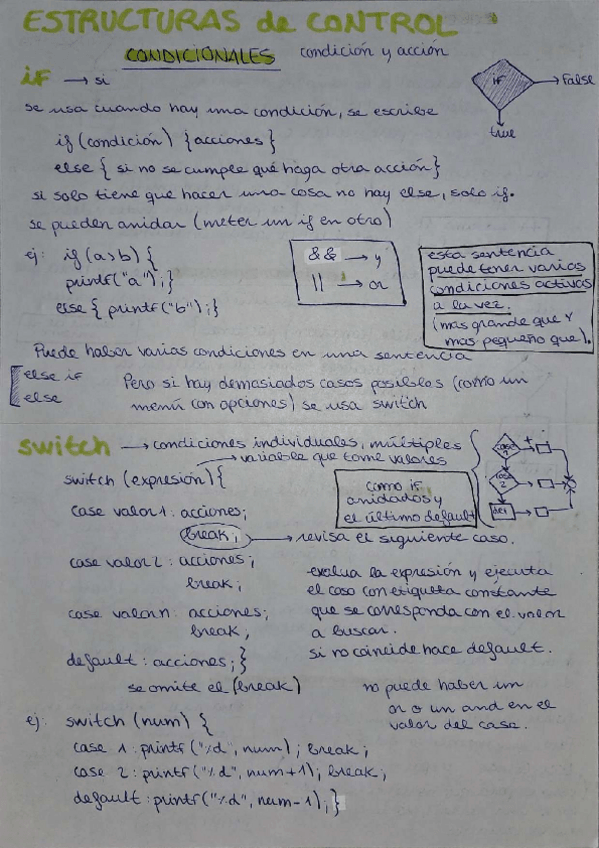 ESTRUCTURAS de CONTROL
CONDICIONALES condición y acción
if → si
se usa cuando hay una condición, se escribe
if (condición) {acciones}
else { si no se cumple qué haga otra acción}
si solo tiene que hacer una cosa no hay else, solo if.
se pueden anidar (meter un if en otro)
ej: if (a>b) {
printf("a");}
else { printf("b");}
IF
False
true
&& → y
|| → or
esta sentencia
puede tener varias
condiciones activas
a la vez.
(mas grande que y
mas pequeño que).
Puede haber varias condiciones en una sentencia
else if
else
Pero si hay demasiados casos posibles (como un
menú con opciones) se usa switch
switch → condiciones individuales, múltiples
→ variable que tome valores
switch (expresión) {
case valor1: acciones;
break; → revisa el siguiente caso.
case valor2: acciones;
break;
case valorn: acciones;
break;
default: acciones;}
se omite el (break)
como if
anidados y
el último default
case
1
+
case
2
def
evalua la expresión y ejecuta
el caso con etiqueta constante
que se corresponda con el valor
a buscar.
si no coincide hace default.
no puede haber un
or o un and en el
valor del case.
ej: switch (num) {
case 1: printf("%d", num); break;
case 2: printf("%d", num+1); break;
default: printf("%d", num-1);}